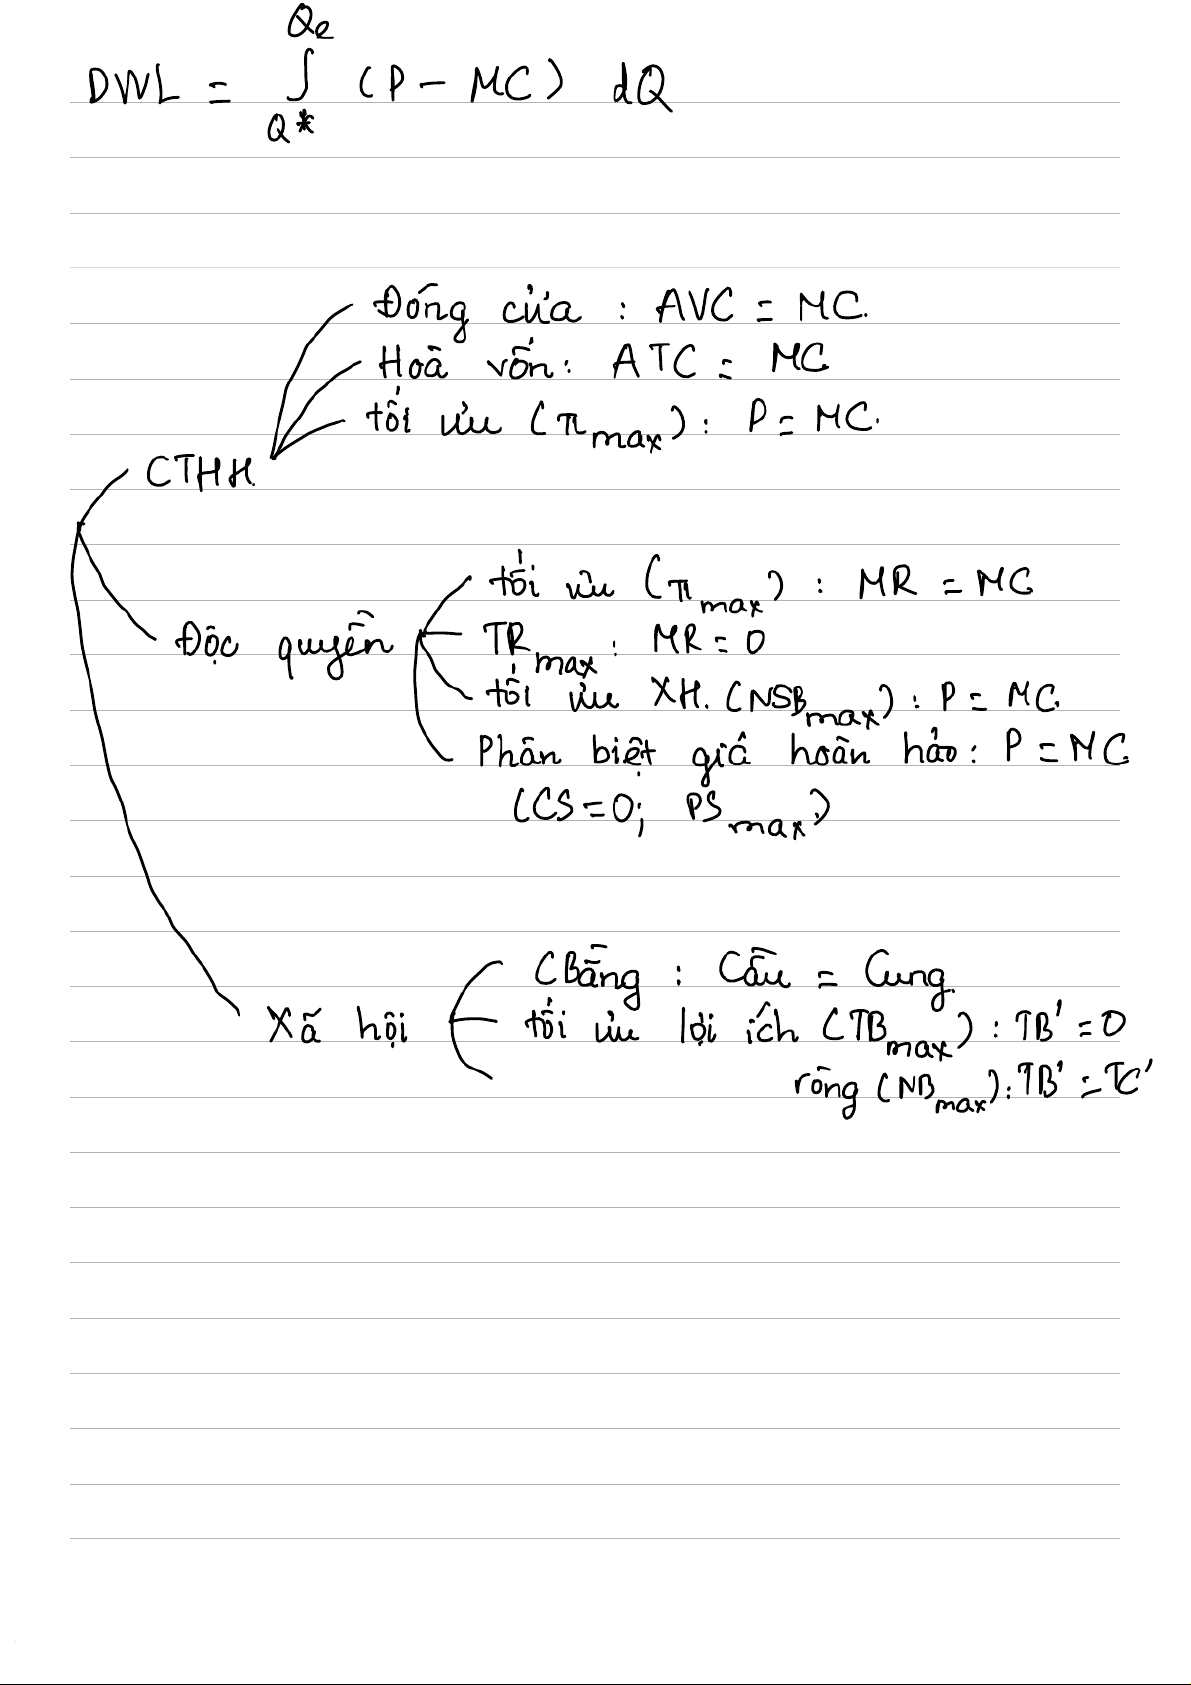 DWL = ∫ (P - MC) dQ
Qe
Q*
Đóng cửa : AVC = MC.
Hoà vốn : ATC = MC
tối ưu (π max) : P = MC.
CTHH.
tối ưu (π max) : MR = MC
Độc quyền
TR max : MR = 0
tối ưu XH. (NSB max) : P = MC.
Phân biệt giá hoàn hảo : P = MC
(CS = 0; PS max)
CBằng : Cầu = Cung.
Xã hội
tối ưu lợi ích (TB max) : TB' = 0
ròng (NB max) : TB' = TC'